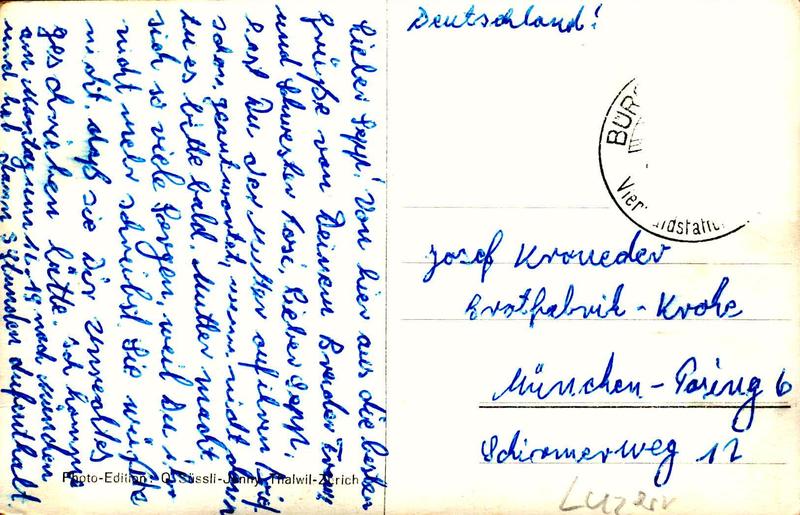 Lieber Sepp! Von hier aus die besten
Grüße von Deinem Bruder Franz
und Schwester Rosi. Lieber Sepp!
hast Du der Mutter auf ihren Brief
schon geantwortet, wenn nicht dann
tu es bitte bald. Mutter macht
sich so viele Sorgen, weil Du ihr
nicht mehr schreibst. Sie wüßte
nicht, daß sie Dir Unrechtes
geschrieben hätte. Ich komme
am Montag um nach München
und hab dann Stunden Aufenthalt
Photo-Edition: O. Süssli-Jenny, Thalwil-Zürich
Deutschland!
BÜR
Vier
Josef Kroneder
Brotfabrik - Krohe
München - Pasing 6
Schirmerweg 12
Luzern